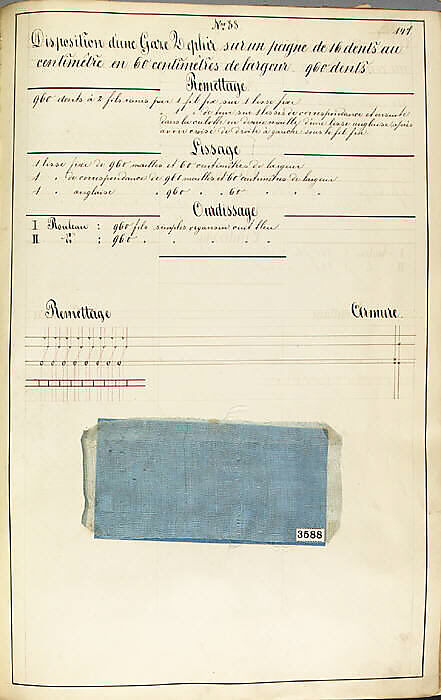 No. 88
147
Disposition d'une Gaze Zéphir sur un peigne de 16 dents au
centimètre en 60 centimètres de largeur 960 dents
Remettage
960 dents à 2 fils remis pas 1 fil fix sur 1 lisse fixe
1 " de tour sur 1 lisse de correspondance et ensuite
dans la culotte ou demie maille d'une lisse anglaise après
avoir croisé de droite à gauche sous le fil fix
Lissage
1 lisse fixe de 960 mailles et 60 centimètres de largeur
1 " de correspondance de 960 mailles et 60 centimètres de largeur
1 " anglaise " 960 " " 60 " " "
Ourdissage
I Rouleau : 960 fils simples organsin cuit bleu
II " : 960 " " " " "
Remettage
Armure.
3588